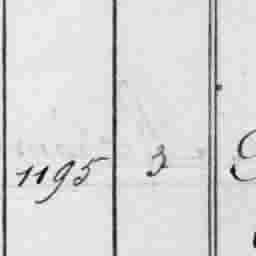 1195 3